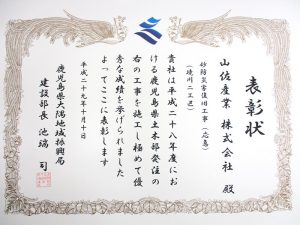 表彰状
山佐産業 株式会社 殿
砂防災害復旧工事(応急)
(境川二工区)
貴社は平成二十八年度にお
ける鹿児島県土木部発注の
右の工事を施工し極めて優
秀な成績を挙げられました
よってここに表彰します
平成二十九年十月十日
鹿児島県大隅地域振興局
建設部長 池端 司